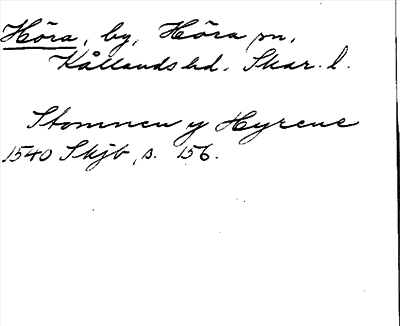 Höra, by, Höra sn,
Kållands hd. Skar. l.
Stomnen y Hyrene
1540 Skjb, s. 156.